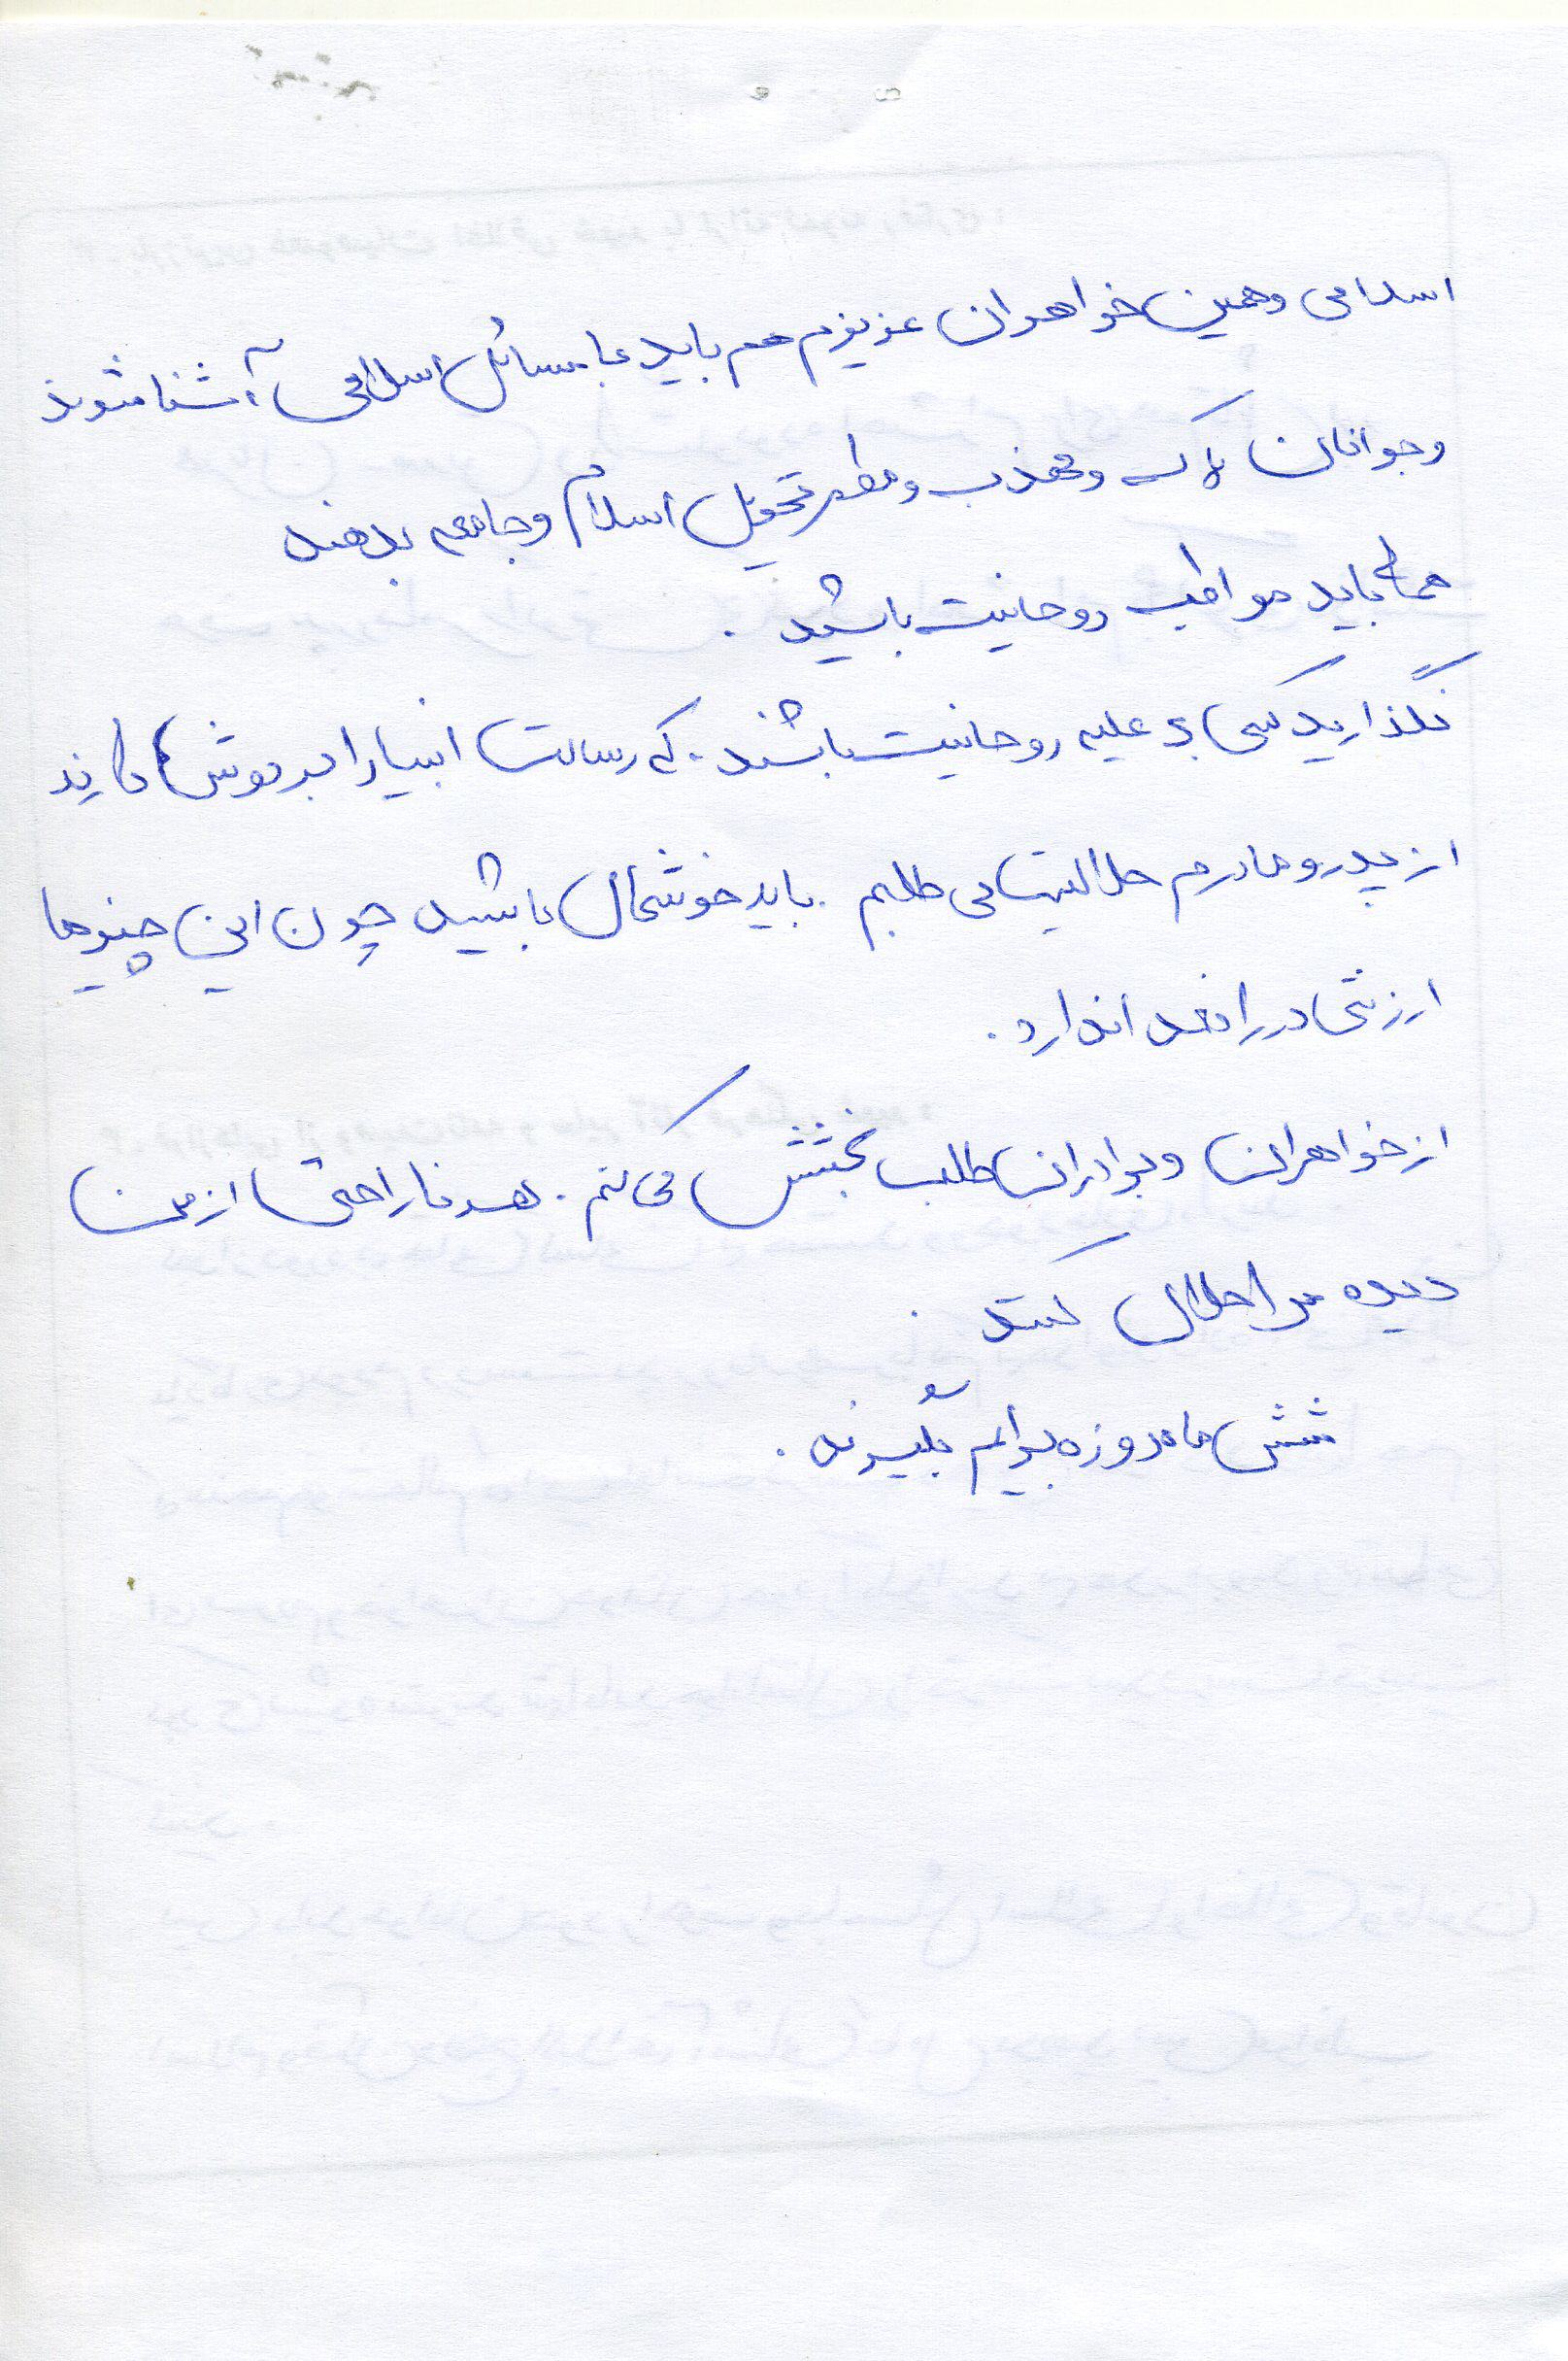 اسلامی و همین خواهران عزیزم هم باید با مسائل اسلامی آشنا شوند
و جوانان پاک و مهذب و مطهر تحویل اسلام و جامعه بدهند
شما باید مواظب روحانیت باشید .
نگذارید کسی بر علیه روحانیت باشند . که رسالت انبیا را بر دوش دارند
از پدر و مادرم حلالیت می طلبم . باید خوشحال باشید چون این چیزها
ارزشی در راه خدا ندارد .
از خواهران و برادران طلب بخشش می کنم . هر ناراحتی از من
دیده مرا حلال کنند .
شش ماه روزه برایم بگیرند .